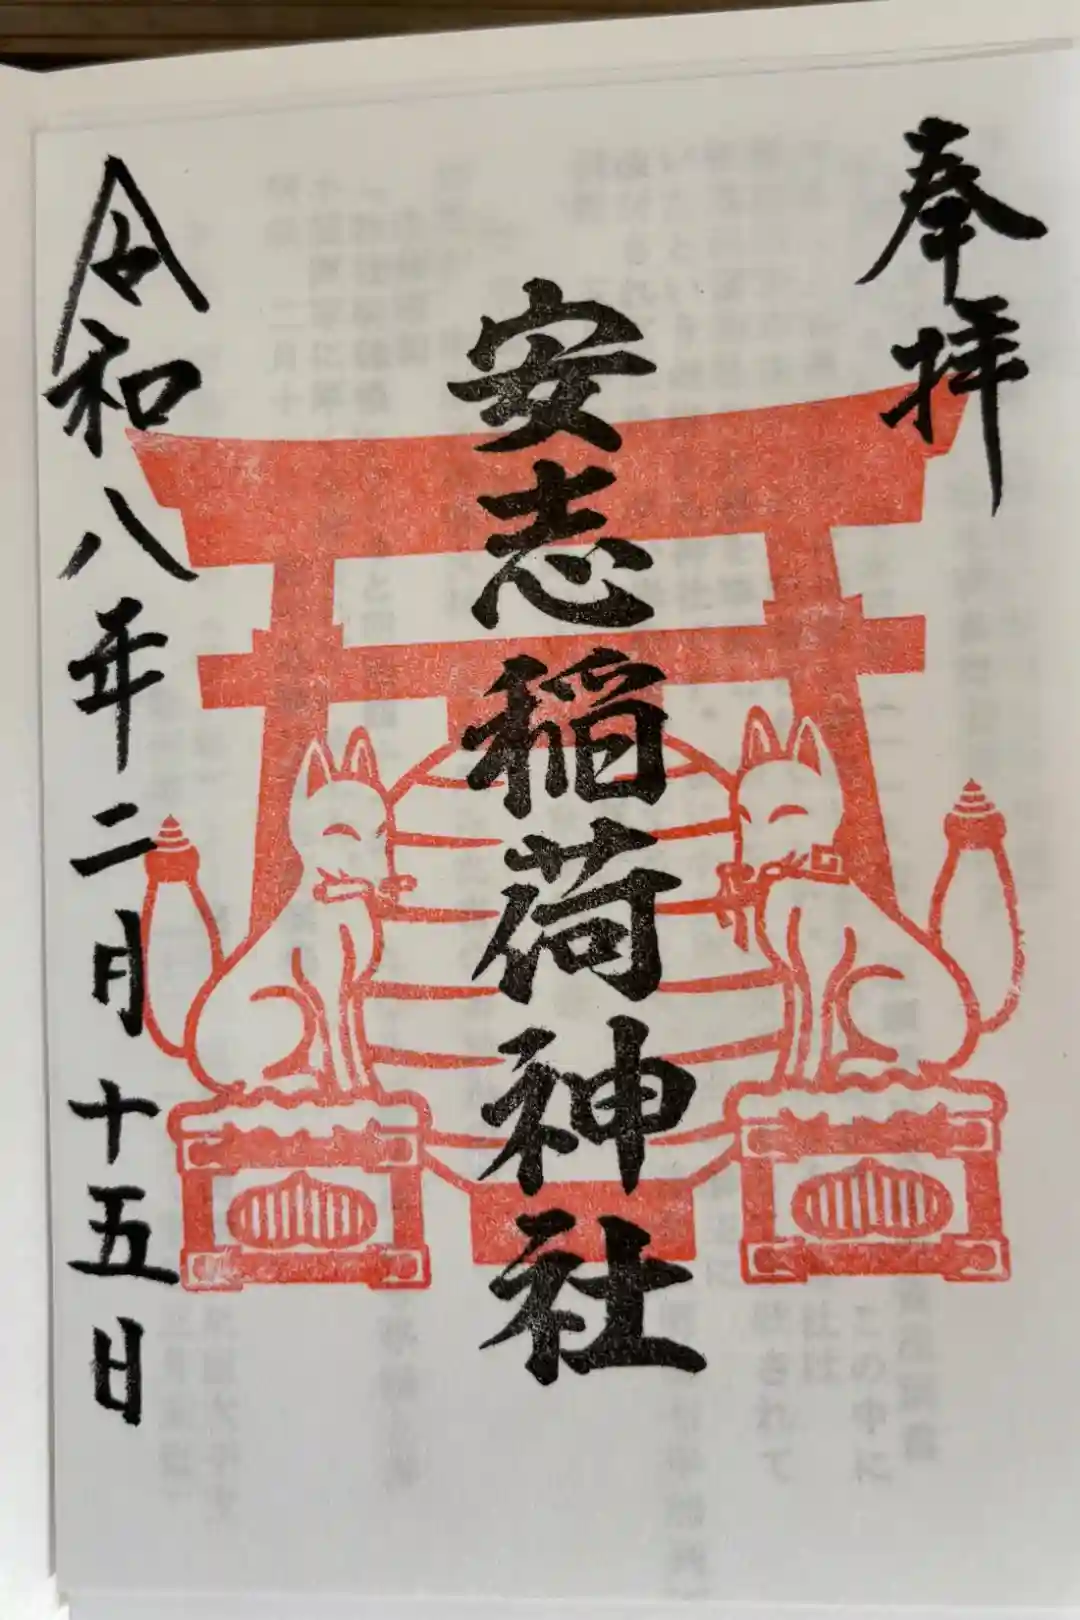 奉拝
安志稲荷神社
令和八年二月十五日